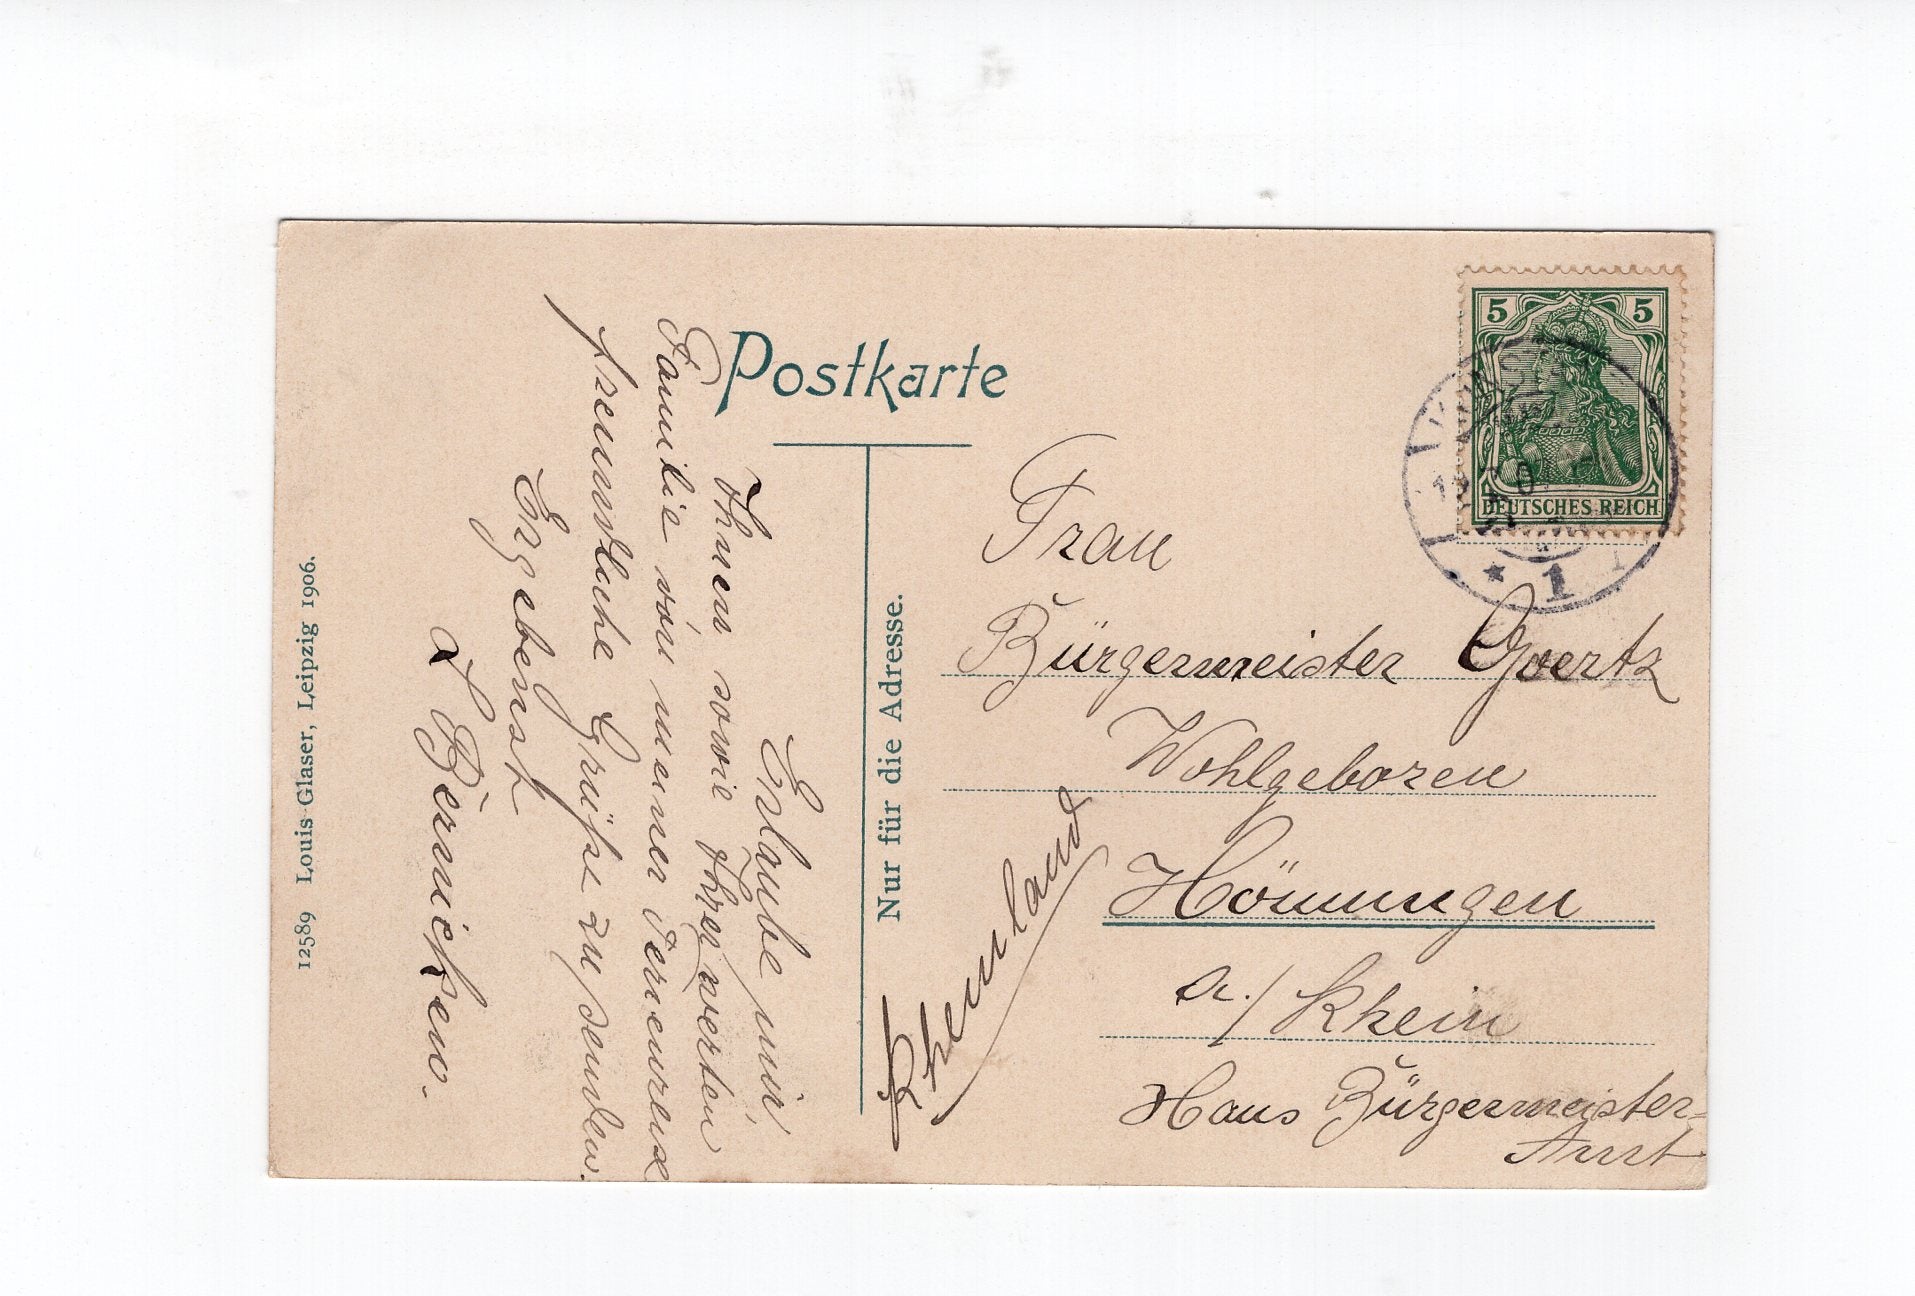 Postkarte
Nur für die Adresse.
5 5
DEUTSCHES REICH
* 1
Frau
Bürgermeister Goertz
Wohlgeboren
Hönningen
a./Rhein
Haus Bürgermeister-
Amt
Rheinland
Erlaube mir
Ihnen sowie Ihrer werten
Familie von meiner Ferienreise
freundliche Grüße zu senden.
Ergebenst
12589 Louis Glaser, Leipzig 1906.